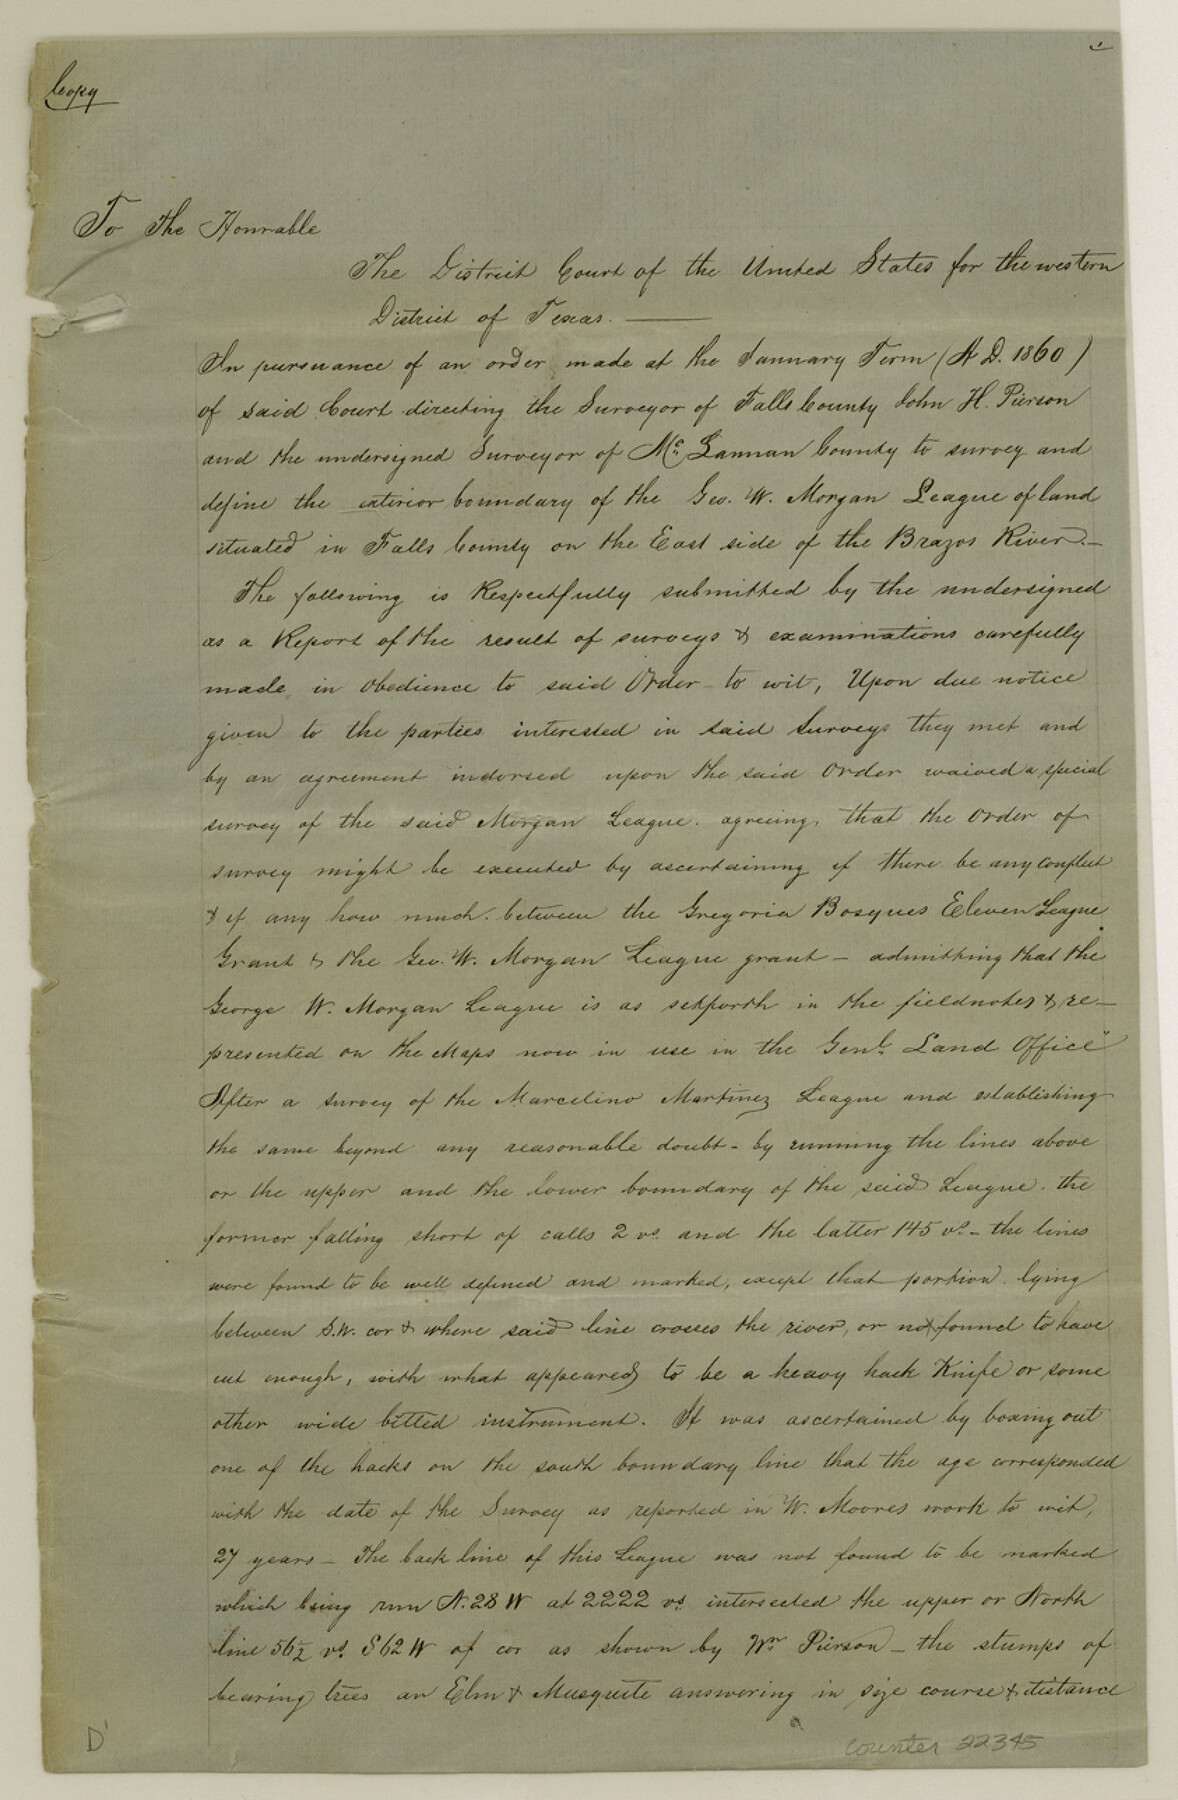 Copy
To the Honrable
The District Court of the United States for the western
District of Texas.
In pursuance of an order made at the Jannary Term (A D. 1860)
of said Court directing the Surveyor of Falls County John H. Pierson
and the undersigned Surveyor of Mc Lannan County to survey and
define the exterior boundary of the Geo. W. Morgan League of land
situated in Falls County on the East side of the Brazos River.—
The following is Respectfully submitted by the undersigned
as a Report of the result of surveys & examinations carefully
made in obedience to said Order to wit, Upon due notice
given to the parties interested in said Surveys they met and
by an agreement indorsed upon the said Order waived a special
survey of the said Morgan League. agreeing, that the Order of
survey might be executed by ascertaining if there be any conflict
& if any how much. between the Gregoria Bosques Eleven League
Grant & the Geo. W. Morgan League grant — admitting that the
George W. Morgan League is as setforth in the fieldnotes & re-
presented on the Maps now in use in the Genl. Land Office"
After a survey of the Marcelino Martinez League and establishing
the same beyond any reasonable doubt - by running the lines above
or the upper and the lower boundary of the said League. the
former falling short of calls 2 vs. and the latter 145 vs. - the lines
were found to be well defined and marked, except that portion lying
between S.W. cor & where said line crosses the river, or not found to have
cut enough, with what appeared to be a heavy hack Knife or some
other wide bitted instrument. It was ascertained by boxing out
one of the hacks on the south boundary line that the age corresponded
with the date of the Survey as reported in W. Moores work to wit,
27 years — The back line of this League was not found to be marked
which being run N. 28 W at 2222 vs. intersected the upper or North
line 56½ vs. S 62 W of cor as shown by Wm Pierson — the stumps of
bearing trees an Elm & Musquite answering in size course & distance
D'
counter 22345